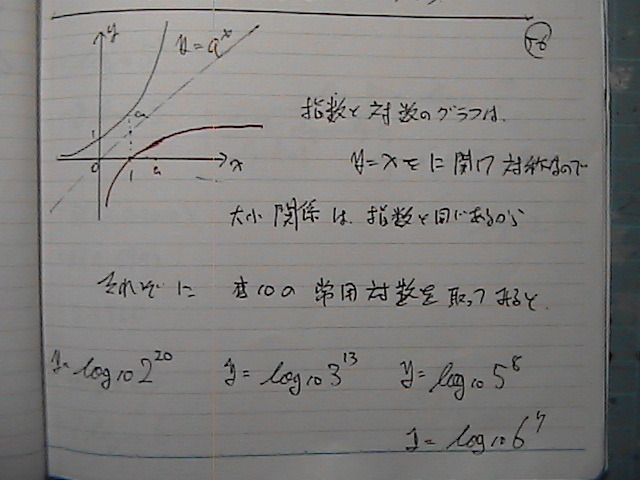 y
y = a^x
a
1
0
1
a
x
指数と対数のグラフは、
y=xをに関して対称なので
大小関係は、指数と同じであるから
それぞれに 底10の常用対数を取ってみると、
y=log10 2^20 y=log10 3^13 y=log10 5^8
y=log10 6^7